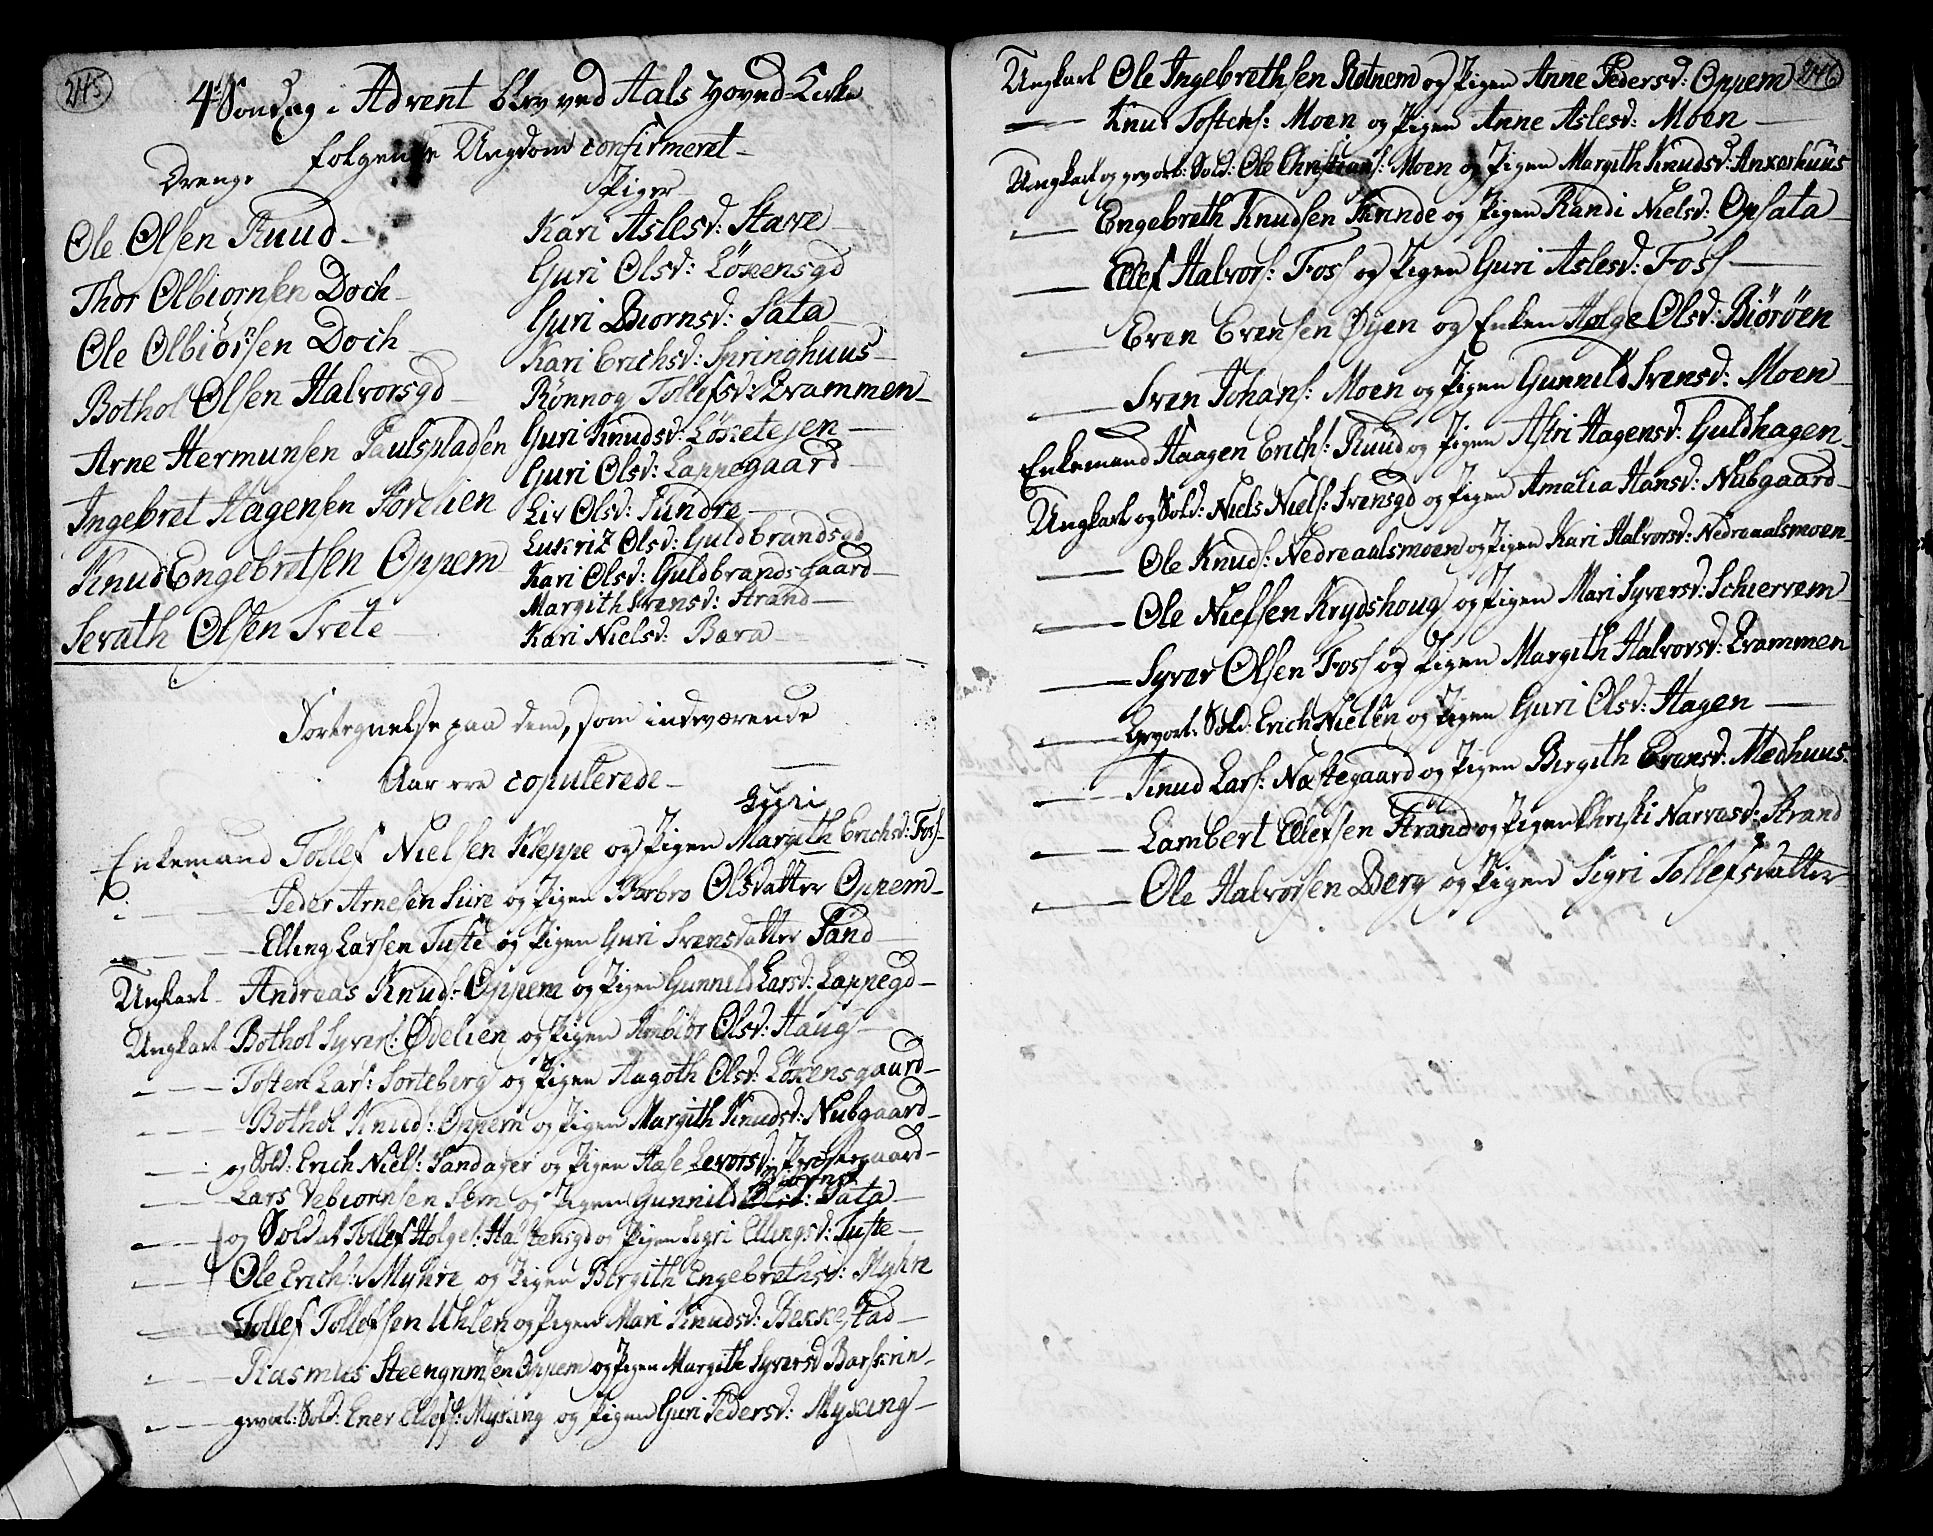 245
4de Søndag i Advent blev ved Aals Hoved-Kirke
følgende Ungdom confirmeret
Drenge
Ole Olsen Ruud
Thor Olbiornsen Doch
Ole Olbiörnsen Doch
Bothol Olsen Halvorsgd
Arne Hermunsen Paulspladsen
Ingebret Hagensen Torelien
Knud Engebretsen Oppem
Sevath Olsen Trete
Piger
Kari Aslesd: Stave
Guri Olsd: Löxensgd
Guri Biornsd: Sata
Kari Erichsd: Springhuus
Rönnog Tollefsd: Drammen
Guri Knudsd: Löxetejen
Guri Olsd: Lappegaard
Liv Olsd: Sundre
Lukriz Olsd: Guldbrandsgd
Kari Olsd: Guldbrandsgaard
Margith Svensd: Strand
Kari Nielsd: Bara
Fortegnelse paa dem, som indværende
Aar ere copulerede
Guri
Enkemand Tollef Nielsen Kleppe og Pigen Margith Erichsd: Foss
Peder Arnesen Sire og Pigen Barbro Olsdatter Oppem
Elling Larsen Tufte og Pigen Guri Svensdatter Sand
Ungkarl Andreas Knuds: Oppem og Pigen Gunnild Larsd: Lappegd
Ungkarl Bothol Syvers: Ødelien og Pigen Ambiör Olsd: Haug
Tosten Lars: Sorteberg og Pigen Aagoth Olsd: Löxensgaard
Bothol Knud: Oppem og Pigen Margith Knudsd: Nubgaard
og Sold: Erich Niels: Sandager og Pigen Aase Levorsd: Præstegaard
Biornsd
Lars Vebiornsen Sem og Pigen Gunnild Sata
og Soldat Tollef Holges: Halstensgd og Pigen Sigri Ellingsd: Tufte
Ole Erichs: Myhre og Pigen Birgith Engebrethsd: Myhre
Tollef Tollefsen Uhlen og Pigen Mari Knudsd: Bekkestad
Rasmus Steengrimsen Oppem og Pigen Margith Syversd Barskrin
gevorb: Sold: Ener Ellefs: Myking og Pigen Guri Pedersd: Myxing
246
Ungkarl Ole Ingebrethsen Rotnem og Pigen Anne Pedersd: Oppem
Knut Tostens: Moen og Pigen Anne Aslesd: Moen
Ungkarl og gevorb: Sold: Ole Christians: Moen og Pigen Margith Knudsd: Ankerhuus
Engebreth Knudsen Skrinde og Pigen Randi Nielsd: Opsata
Ellef Halvors: Foss og Pigen Guri Aslesd: Foss
Even Evensen Øyen og Enken Helge Olsd: Biöröen
Sven Johans: Moen og Pigen Gunnild Svensd: Moen
Enkemand Haagen Erichs: Ruud og Pigen Astri Hagensd: Guldhagen
Ungkarl og Sold: Niels Niels: Svensgd og Pigen Amalia Hansd: Nubgaard
Ole Knuds: Nedreaalsmoen og Pigen Kari Halvorsd: Nedreaalsmoen
Ole Nielsen Krydshoug og Pigen Mari Syversd: Schiervem
Syver Olsen Foss og Pigen Margith Halvorsd: Drammen
Gevorb: Sold: Erich Nielsen og Pigen Guri Olsd: Hagen
Knud Lars: Næstegaard og Pigen Birgith Evensd: Medhuus
Lambert Ellefsen Strand og Pigen Christi Narvesd: Strand
Ole Halvorsen Berg og Pigen Sigri Tollefsdatter